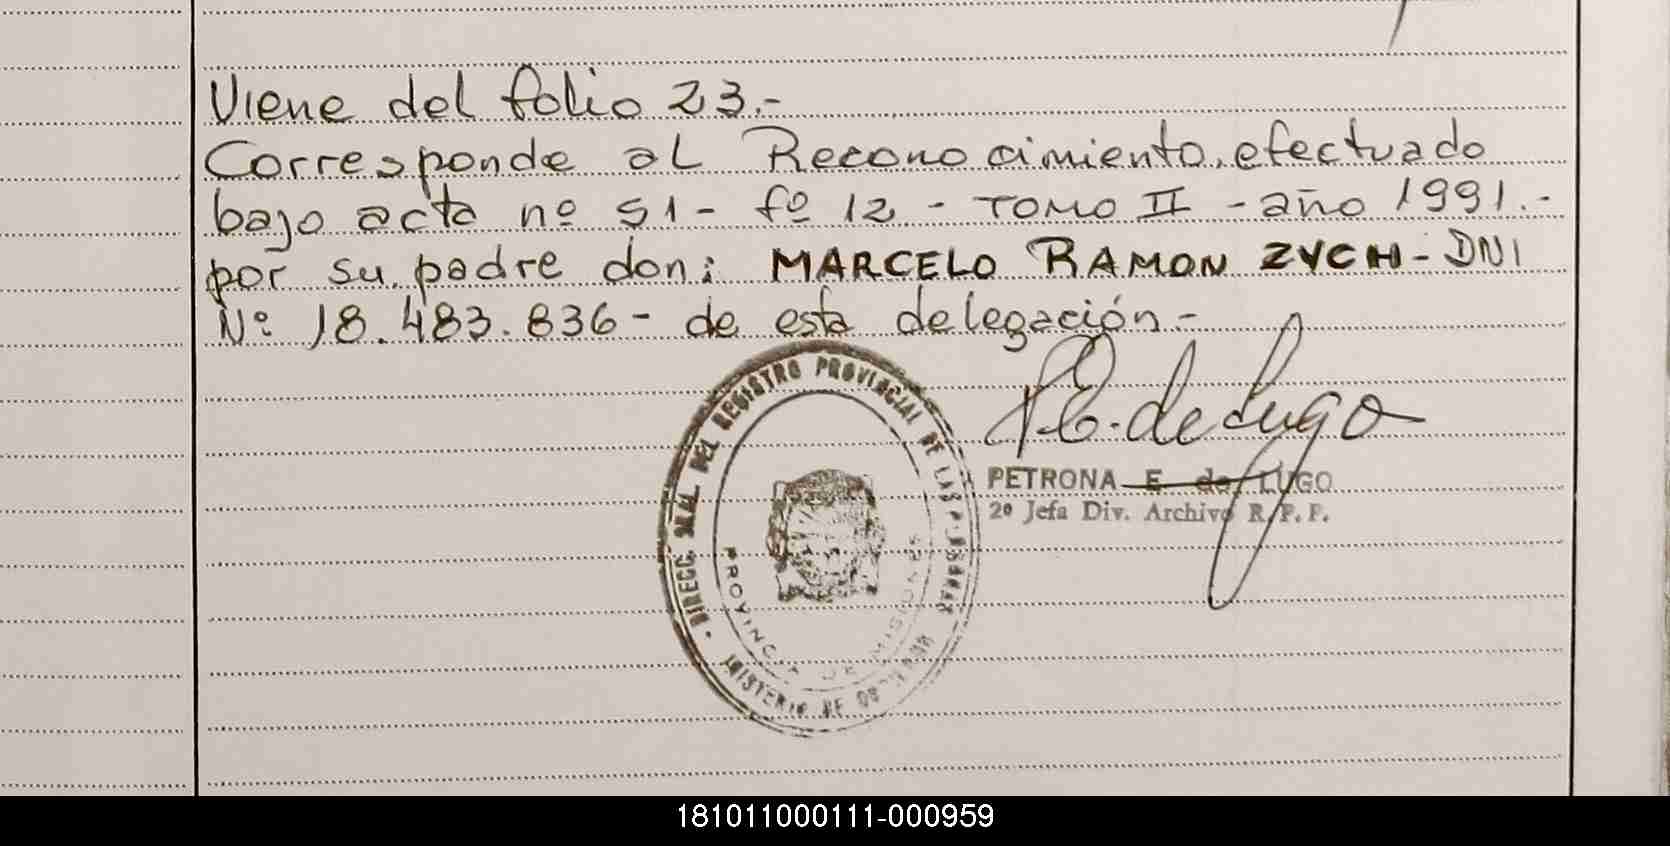 Viene del folio 23.-
Corresponde al Reconocimiento, efectuado
bajo acta nº 51 - fº 12 - TOMO II - año 1991.-
por su padre don: MARCELO RAMON ZYCH - DNI
Nº 18.483.836 - de esta delegación.-
P.E. de Lugo
PETRONA E. de LUGO
2º Jefa Div. Archivo R.P.P.
DIRECC. GRAL. DEL REGISTRO PROVINCIAL DE LAS PERSONAS
PROVINCIA DE MISIONES
MINISTERIO DE GOBIERNO
181011000111-000959